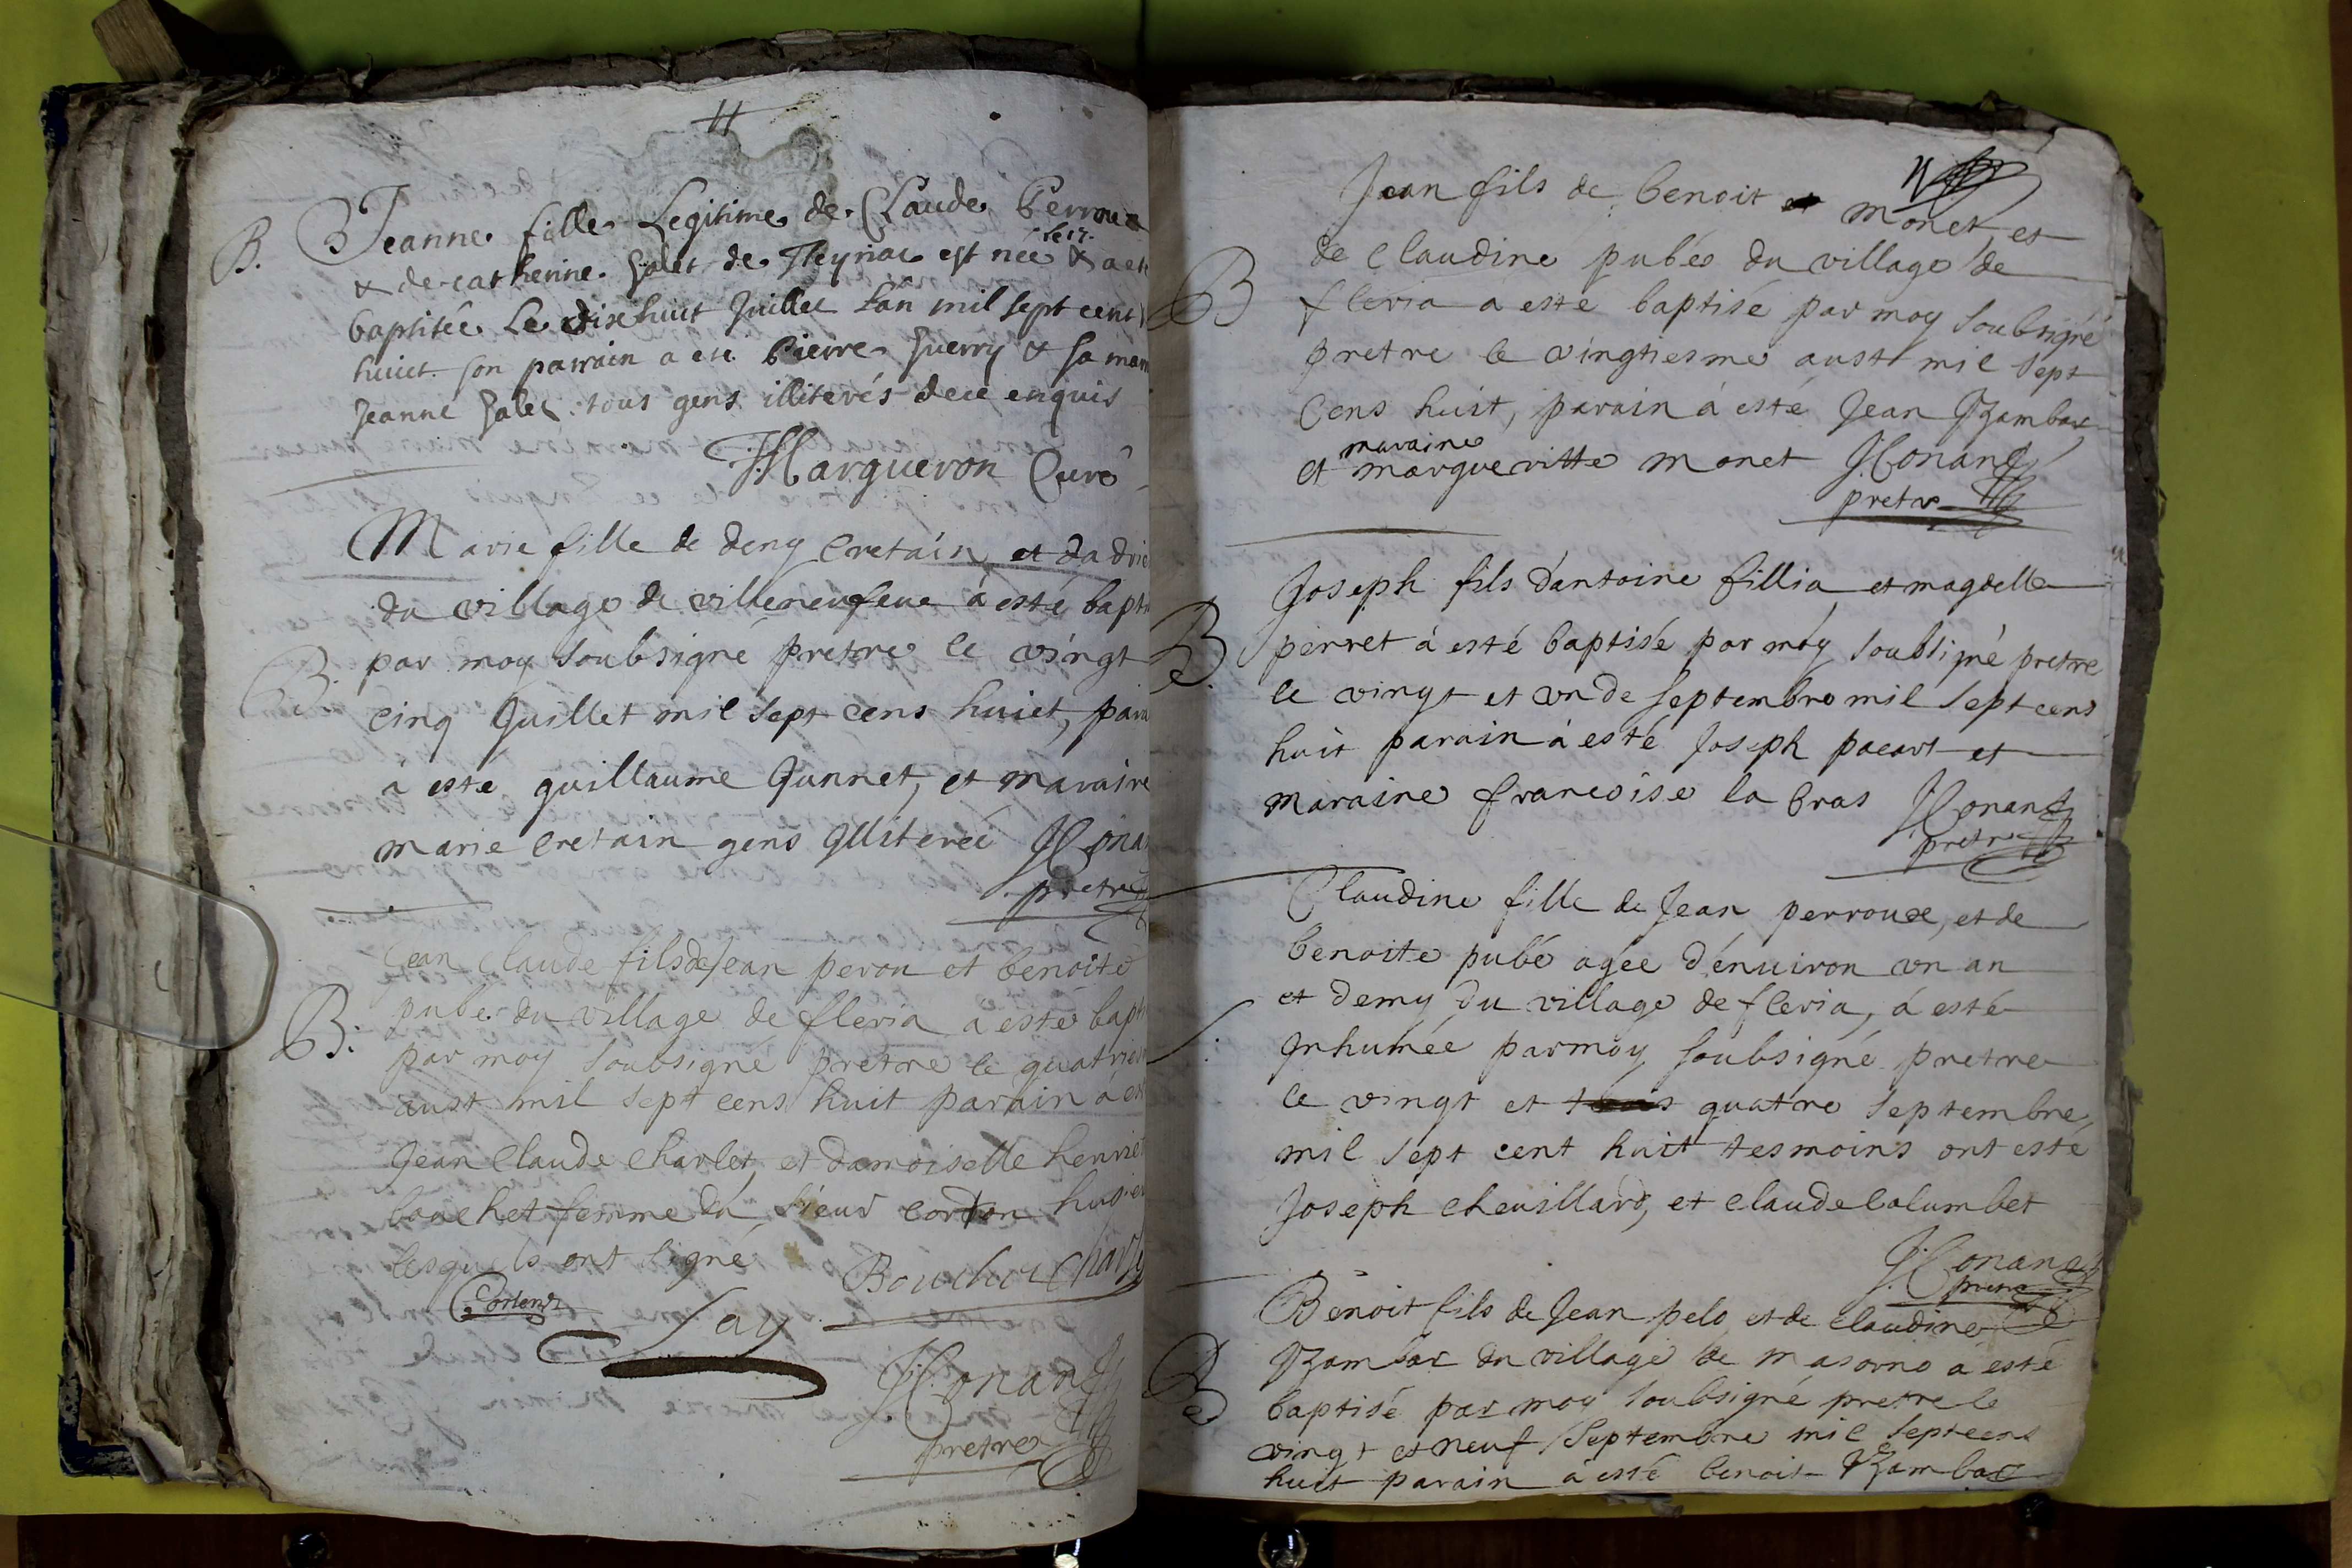 B. Jeanne fille Legitime de Claude Perroux
le 17.
& de catherine Galet de Fleyriac est née & a ete
baptisée Le dixhuit Juillet L'an mil sept cent
huict son parrain a ete Pierre Guerry & sa mar
Jeanne Galet tous gens illiterés de ce enquis
Margueron Curé
Marie fille de deny Cretain et dadri
du village de villeneufeue à esté bapti
B. par moy soubsigné pretre le vingt
cinq Juillet mil sept cens huict, para
a este guillaume Gunnet, et maraine
marie cretain gens Illiterée JConan
pretre
Jean claude fils de Jean perou et benoite
B: pube du village de fleria a este bapti
par moy soubsigné pretre le quatrie
aust mil sept cens huit parain à est
Jean Claude Charlet, et damoiselle henriet
bouchet femme du sieur corton
lesquels ont signé Bouchet Charle
Corton
Lay
JConand
pretre
Jean fils de benoit monet et
de Claudine pubée du village de
B fleria a esté baptisé par moy soubsigné
pretre le vingtiesme aust mil sept
Cens huit, parain à esté Jean Rambax
maraine
et margueritte monet JConand
pretre
Joseph fils d'antoine fillia et magdelle
B perret à esté baptisé par moy soubsigné pretre
le vingt et vn de septembre mil sept cens
huit parain à esté Joseph pacart et
maraine francoise la bras JConand
pretre
Claudine fille de Jean perroux, et de
benoite pubé agée d'énuiron vn an
et demy du village de fleria, à esté
Inhumée par moy soubsigné pretre
le vingt et trois quatre septembre
mil sept cent huit tesmoins ont este
Joseph cheuillard, et claude Calumbet
JConand
pretre
Benoit fils de Jean pelo et de claudine
B Rambax du village de masorno à esté
baptisé par moy soubsigné pretre le
vingt et neuf Septembre mil sept cens
huit parain à esté benoit Rambax